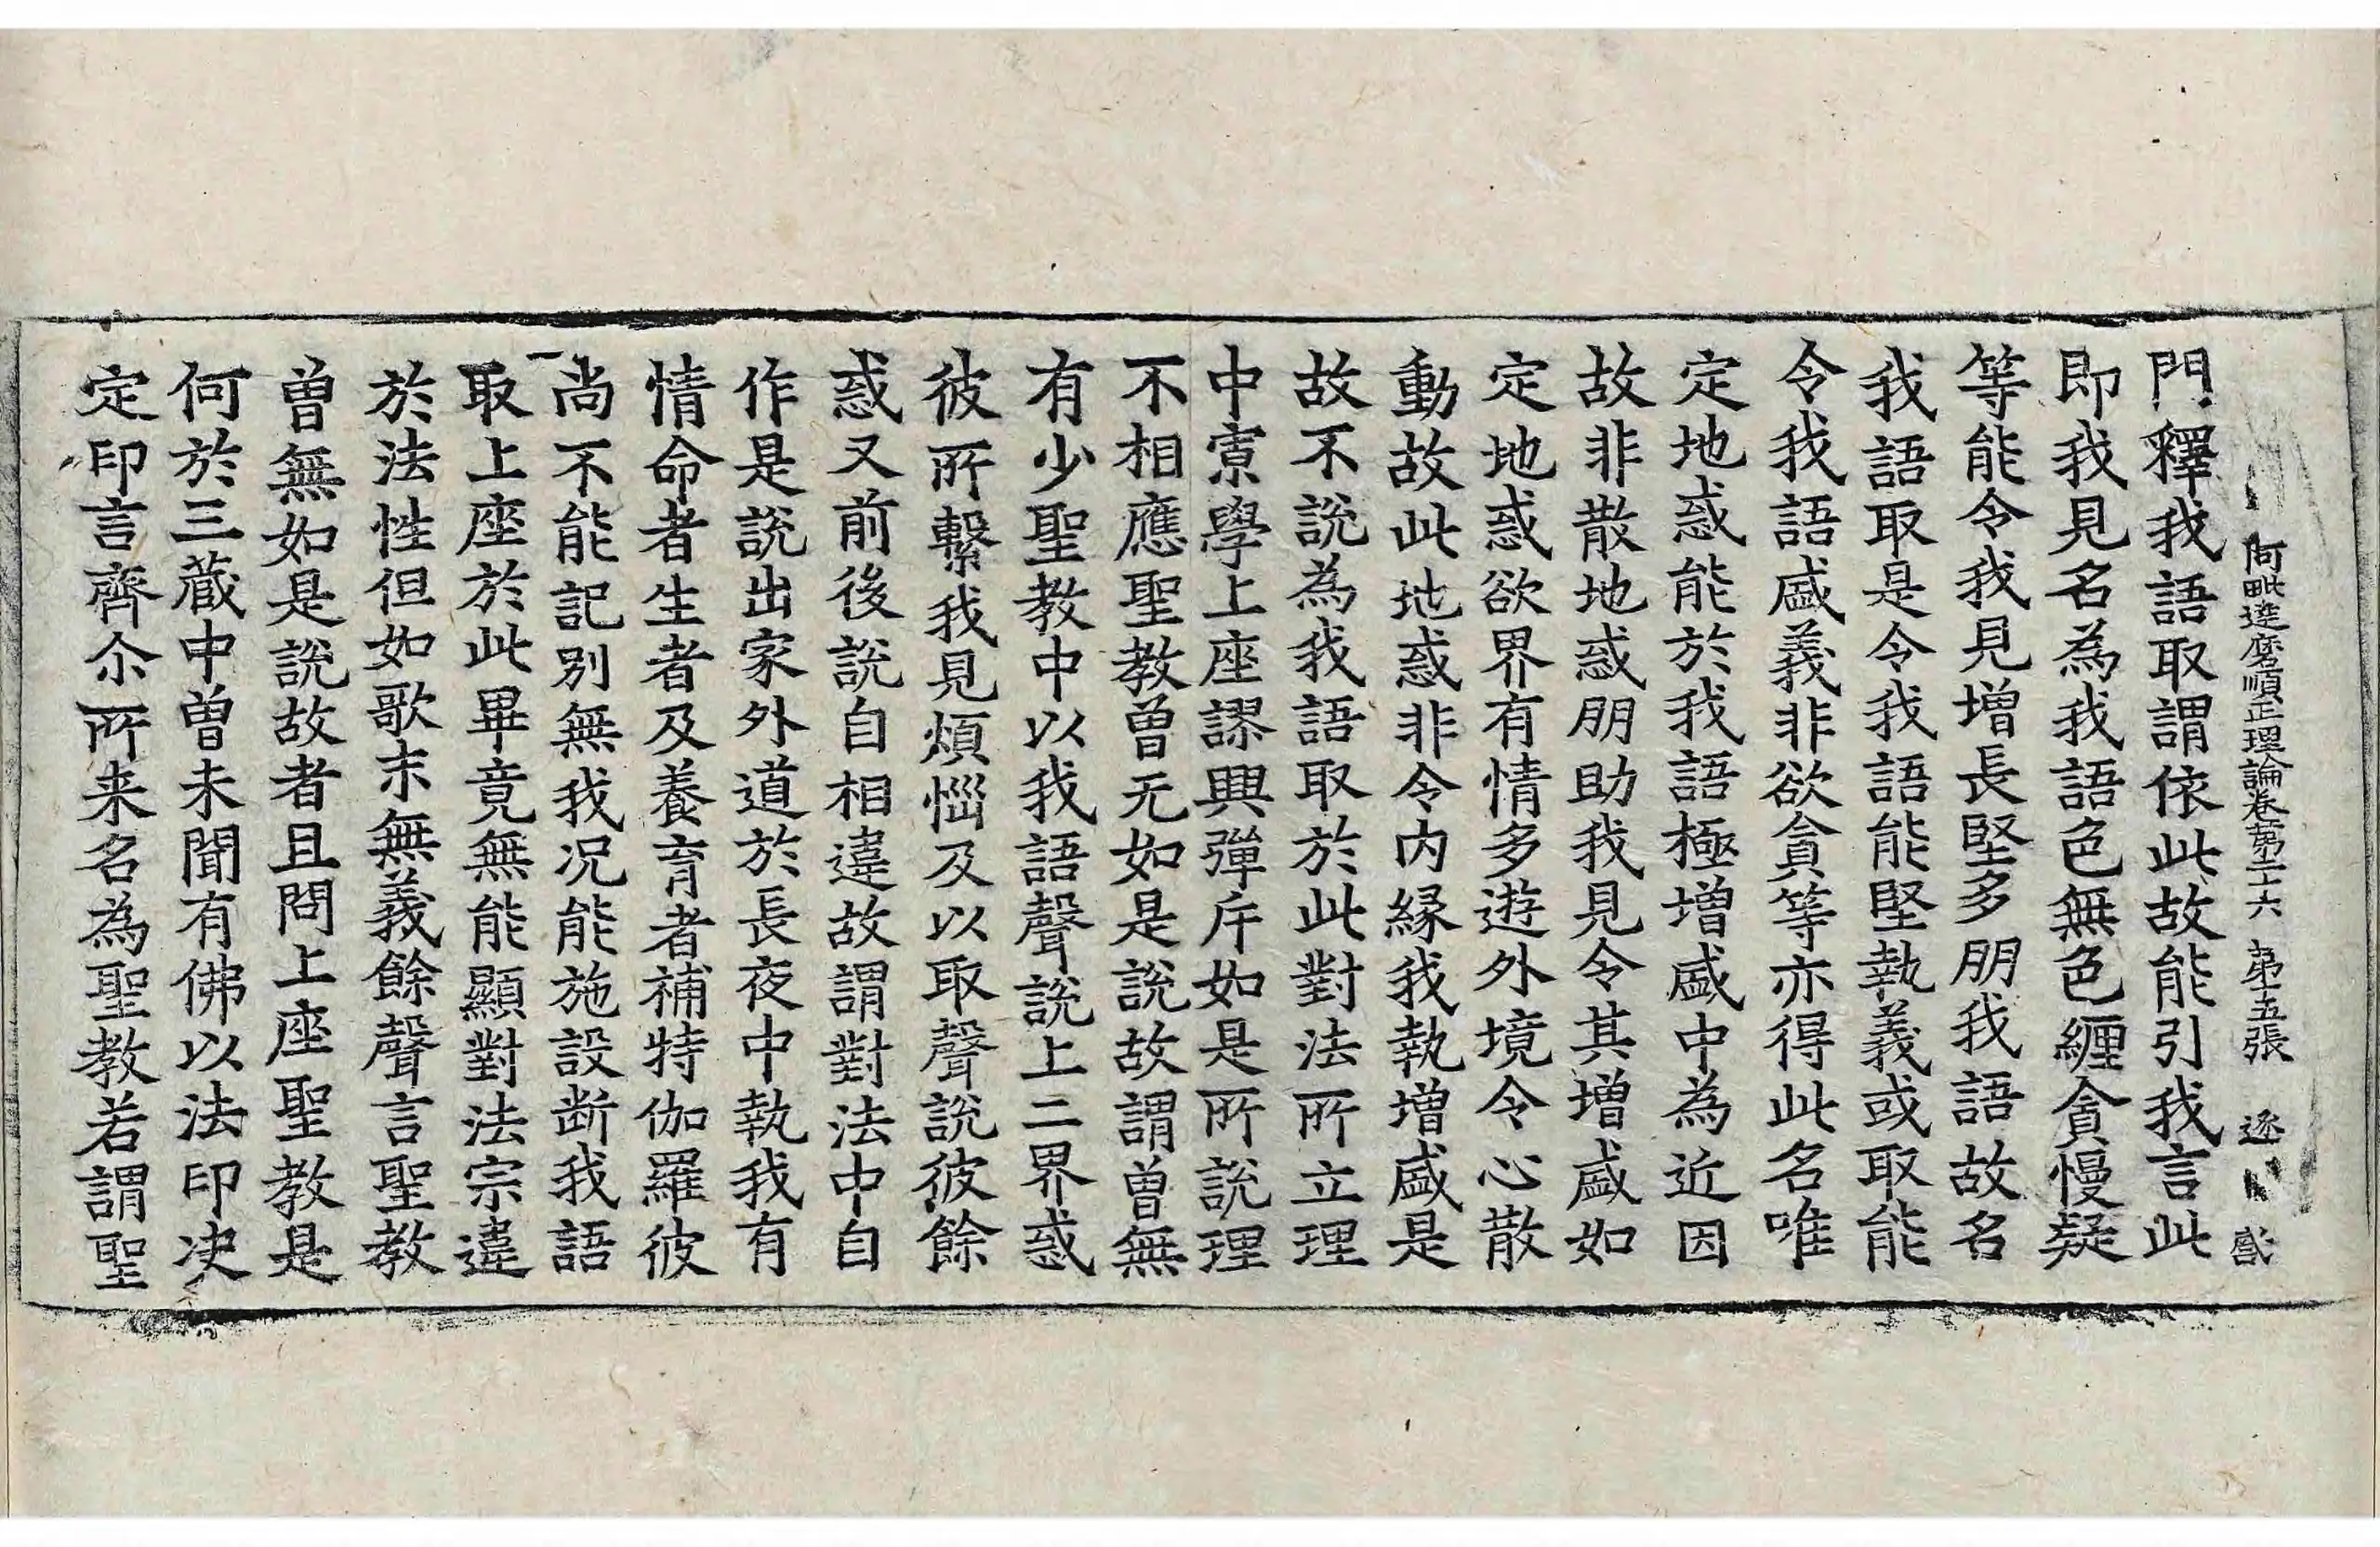 阿毗達磨順正理論卷第二十六 第五張 逐
門釋我語取謂依此故能引我言此
即我見名為我語色無色纏貪慢疑
等能令我見增長堅多朋我語故名
我語取是令我語能堅執義或取能
令我語盛義非欲貪等亦得此名唯
定地惑能於我語極增盛中為近因
故非散地惑朋助我見令其增盛如
定地惑欲界有情多遊外境令心散
動故此地惑非令内緣我執增盛是
故不說為我語取於此對法所立理
中寡學上座謬興彈斥如是所說理
不相應聖教曾无如是說故謂曾無
有少聖教中以我語聲說上二界惑
彼所繫我見煩惱及以取聲說彼餘
惑又前後說自相違故謂對法中自
作是說出家外道於長夜中執我有
情命者生者及養育者補特伽羅彼
尚不能記別無我况能施設断我語
取上座於此畢竟無能顯對法宗違
於法性但如歌末無義餘聲言聖教
曾無如是說故者且問上座聖教是
何於三蔵中曾未聞有佛以法印决
定印言齊尒所来名為聖教若謂聖